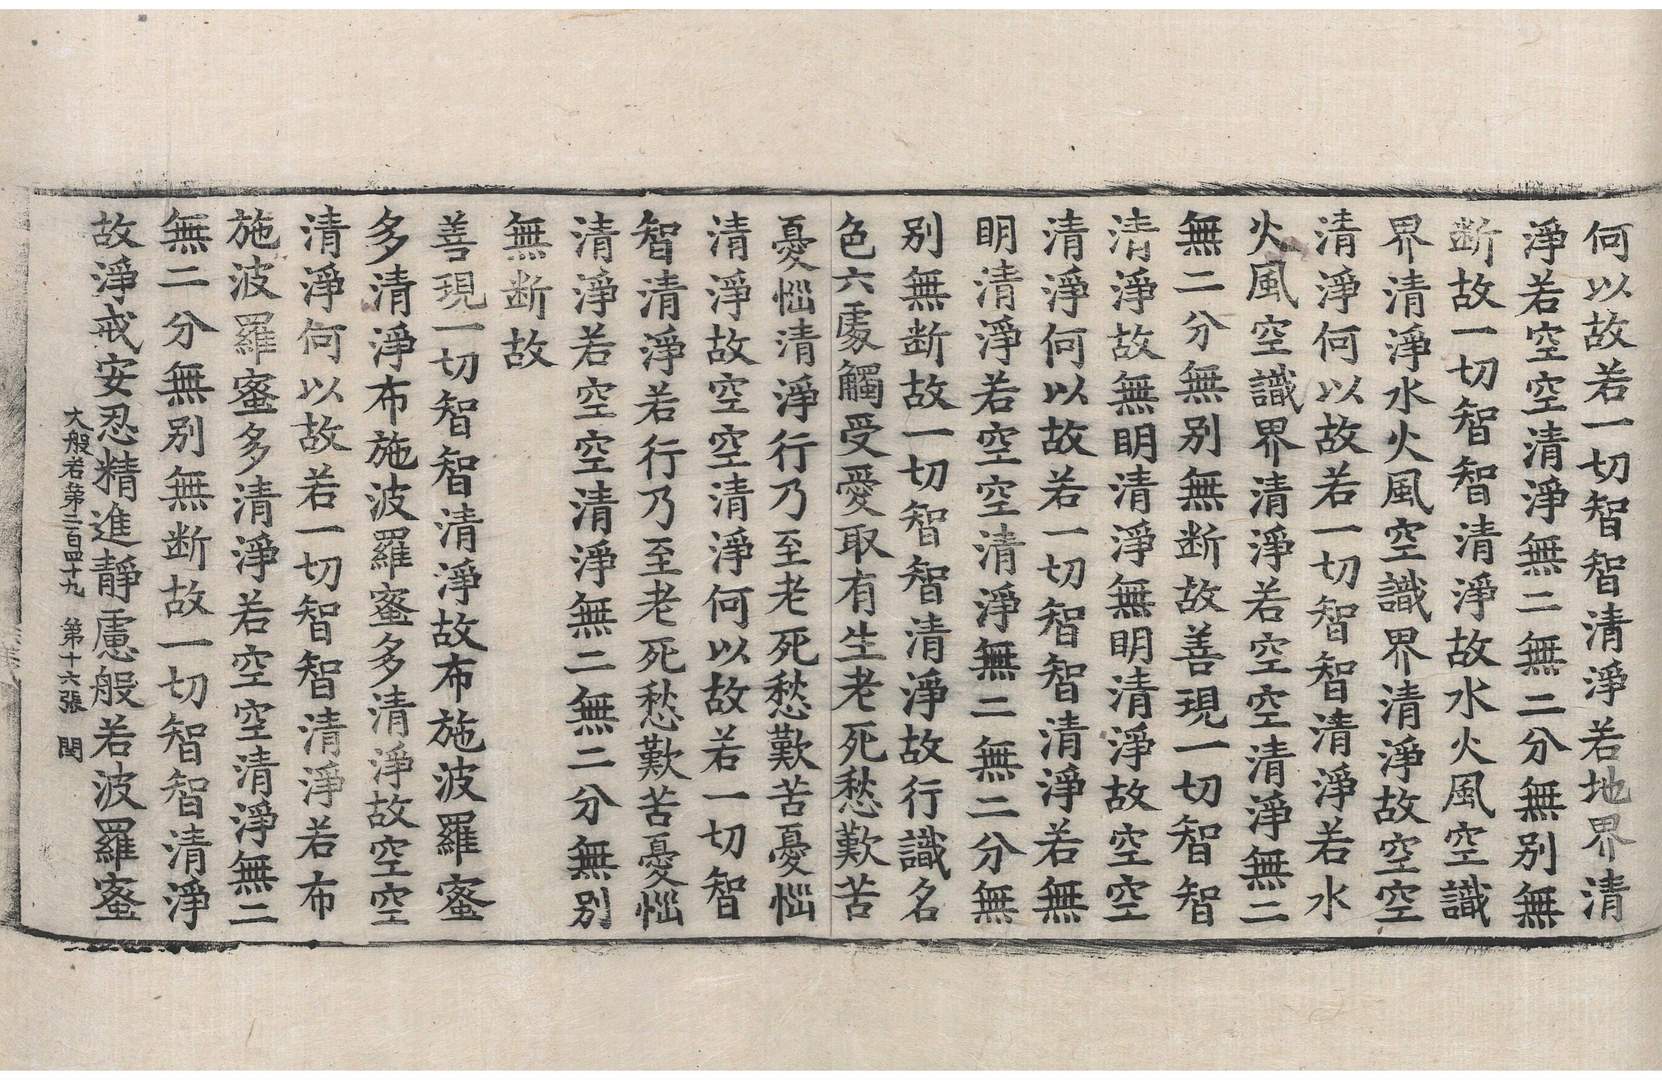 何以故若一切智智清淨若地界清
淨若空空清淨無二無二分無別無
断故一切智智清淨故水火風空識
界清淨水火風空識界清淨故空空
清淨何以故若一切智智清淨若水
火風空識界清淨若空空清淨無二
無二分無別無断故善現一切智智
清淨故無明清淨無明清淨故空空
清淨何以故若一切智智清淨若無
明清淨若空空清淨無二無二分無
別無断故一切智智清淨故行識名
色六處觸受愛取有生老死愁歎苦
憂惱清淨行乃至老死愁歎苦憂惱
清淨故空空清淨何以故若一切智
智清淨若行乃至老死愁歎苦憂惱
清淨若空空清淨無二無二分無別
無断故
善現一切智智清淨故布施波羅蜜
多清淨布施波羅蜜多清淨故空空
清淨何以故若一切智智清淨若布
施波羅蜜多清淨若空空清淨無二
無二分無別無断故一切智智清淨
故淨戒安忍精進靜慮般若波羅蜜
大般若第二百四十九 第十六張 閏